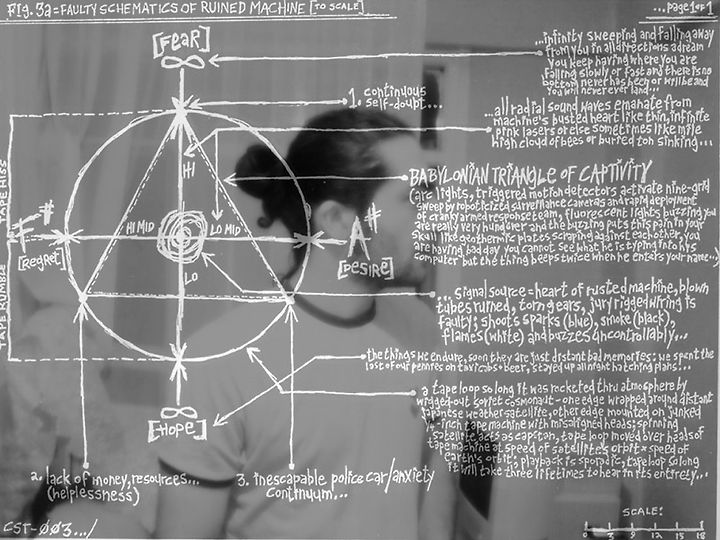 FIG. 3a = FAULTY SCHEMATICS OF RUINED MACHINE [TO SCALE]
...page 1 of 1
[FEAR]
...infinity sweeping and falling away
from you in all directions a dream
you keep having where you are
falling slowly or fast and there is no
bottom never has been or will be and
you will never ever land...
1. continuous
self-doubt...
...all radial sound waves emanate from
machine's busted heart like thin, infinite
pink lasers or else sometimes like mile
high cloud of bees or buried ton sinking...
BABYLONIAN TRIANGLE OF CAPTIVITY
(arc lights, triggered motion detectors activate nine-grid
sweep by roboticized surveillance cameras and rapid deployment
of cranky armed response team, fluorescent lights buzzing you
are really very hungover and the buzzing puts this pain in your
skull like geothermic plates scraping against each other, you
are having a bad day you cannot see what he is typing into his
computer but the thing beeps twice when he enters your name...)
TAPE HISS
TAPE RUMBLE
HI
HI MID
LO MID
LO
F#
[REGRET]
A#
[DESIRE]
...signal source = heart of rusted machine, blown
tubes ruined, torn gears, jury rigged wiring is
faulty; shoots sparks (blue), smoke (black),
flames (white) and buzzes uncontrollably...
the things we endure, soon they are just distant bad memories; we spent the
last of our pennies on taxicabs + beer, stayed up all night hatching plans...
a tape loop so long it was rocketed thru atmosphere by
wigged-out soviet cosmonaut - one edge wrapped around distant
japanese weather satellite, other edge mounted on junked
inch tape machine with misaligned heads; spinning
satellite acts as capstan, tape loop moved over heads of
tape machine at speed of satellite's orbit × speed of
earth's orbit; playback is sporadic, tape loop so long
it will take three lifetimes to hear in its entirety...
[HOPE]
2. lack of money, resources...
(helplessness)
3. inescapable police car/anxiety
continuum...
CST-003.../
SCALE:
0 3 9 12 15 18